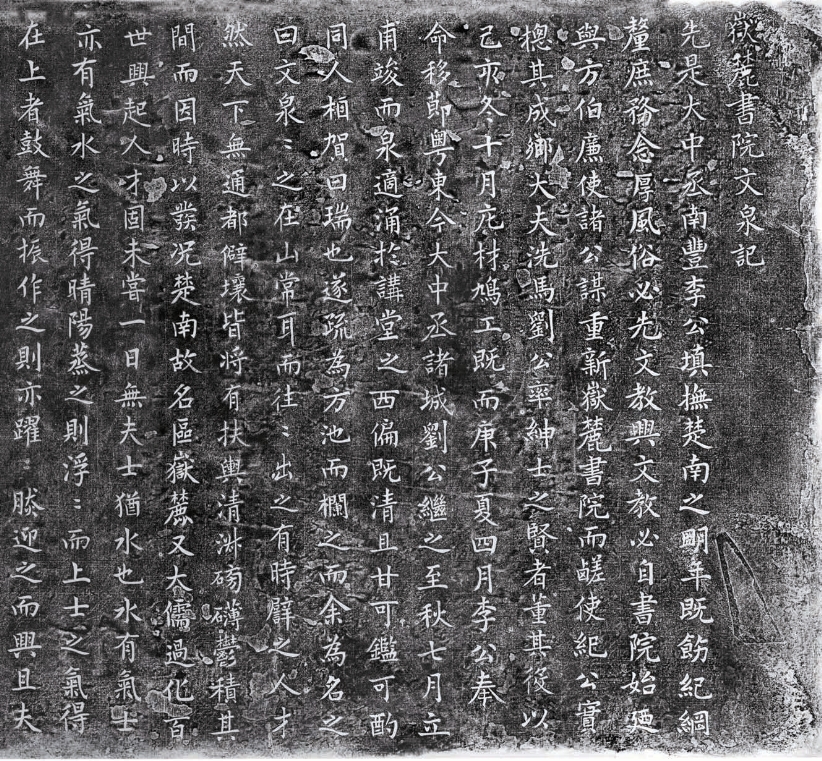 嶽麓書院文泉記
先是大中丞南豐李公填撫楚南之明年既飭紀綱
釐庶務念厚風俗必先文教興文教必自書院始廼
與方伯廉使諸公謀重新嶽麓書院而鹾使紀公實
摠其成鄉大夫洗馬劉公率紳士之賢者董其役以
己亥冬十月庀材鳩工既而庚子夏四月李公奉
命移節粤東今大中丞諸城劉公繼之至秋七月立
甫竣而泉適涌於講堂之西偏既清且甘可鑑可酌
同人栢賀曰瑞也遂疏為方池而欄之而余為名之
曰文泉〻之在山常耳而往〻出之有時辟之人才
然天下無通都僻壤皆将有扶輿清淑磅礴鬱積其
間而因時以發况楚南故名區嶽麓又大儒過化百
世興起人才固未嘗一日無夫士猶水也水有氣士
亦有氣水之氣得晴陽蒸之則浮〻而上士之氣得
在上者鼓舞而振作之則亦躍〻勝迎之而興且夫